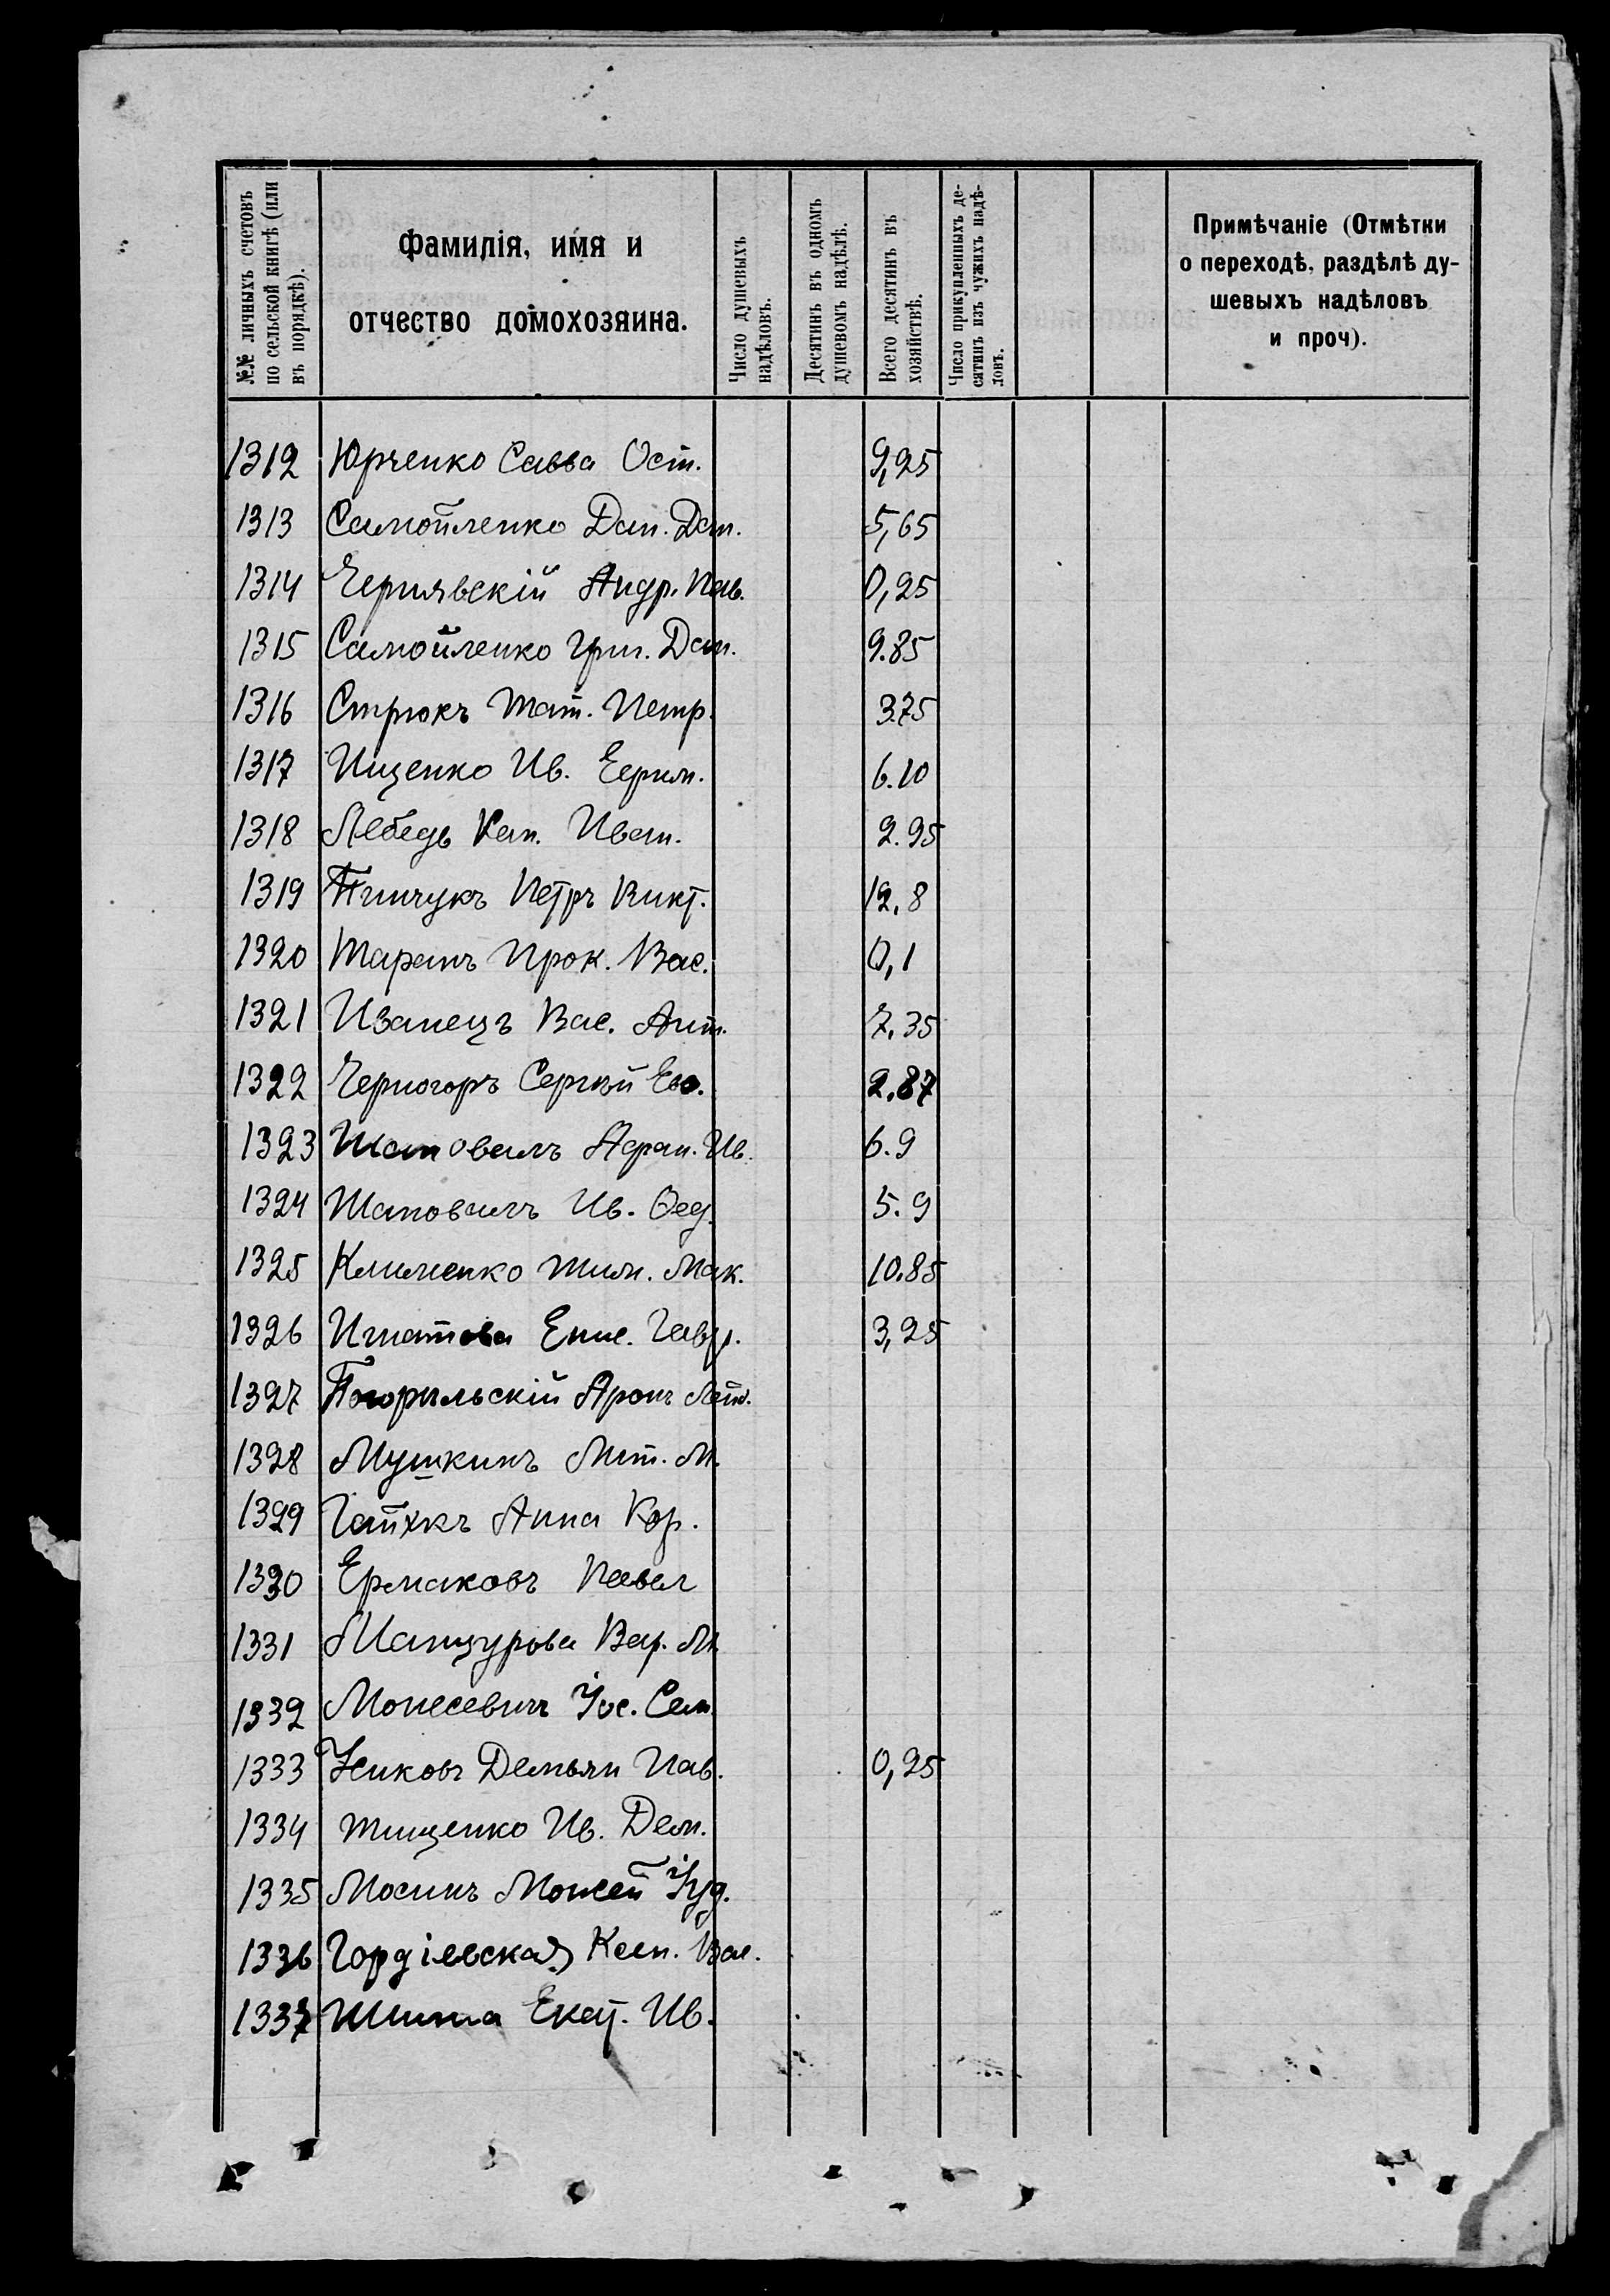 №№ личныхъ счетовъ по сельской книгѣ (или въ порядкѣ).
Фамилія, имя и отчество домохозяина.
Число душевыхъ надѣловъ.
Десятинъ въ одномъ душевомъ надѣлѣ.
Всего десятинъ въ хозяйствѣ.
Число прикупленныхъ десятинъ изъ чужихъ надѣловъ.
Примѣчаніе (Отмѣтки о переходѣ, раздѣлѣ душевыхъ надѣловъ и проч).
1312 Юрченко Савва Ост. 9,25
1313 Самойленко Дан. Дан. 5,65
1314 Чернявскій Андр. Пав. 0,25
1315 Самойленко Гри. Дан. 9.85
1316 Стрюкъ Тат. Петр. 3.75
1317 Ищенко Ив. Ефим. 6.10
1318 Лебедь Кап. Иван. 2.95
1319 Пинчукъ Петръ Викт. 12,8
1320 Таранъ Прок. Вас. 0,1
1321 Иванецъ Вас. Ант. 7.35
1322 Черногоръ Сергѣй 2.87
1323 Шаповалъ Афан. Ив. 6.9
1324 Шаповалъ Ив. Ѳед. 5.9
1325 Клименко Тим. Мак. 10.85
1326 Игнатова Гавр. 3,25
1327 Погорѣльскій Аронъ
1328 Мушкинъ Мит. М.
1329 Анна Кор.
1330 Ермаковъ Павел
1331 Манцурова Вар. М.
1332 Моисевич Іос. Сем.
1333 Демьян Пав. 0,25
1334 Тищенко Ив. Дем.
1335 Мосинъ Моисей Іуд.
1336 Гордіевская Ксен. Вас.
1337 Екат. Ив.